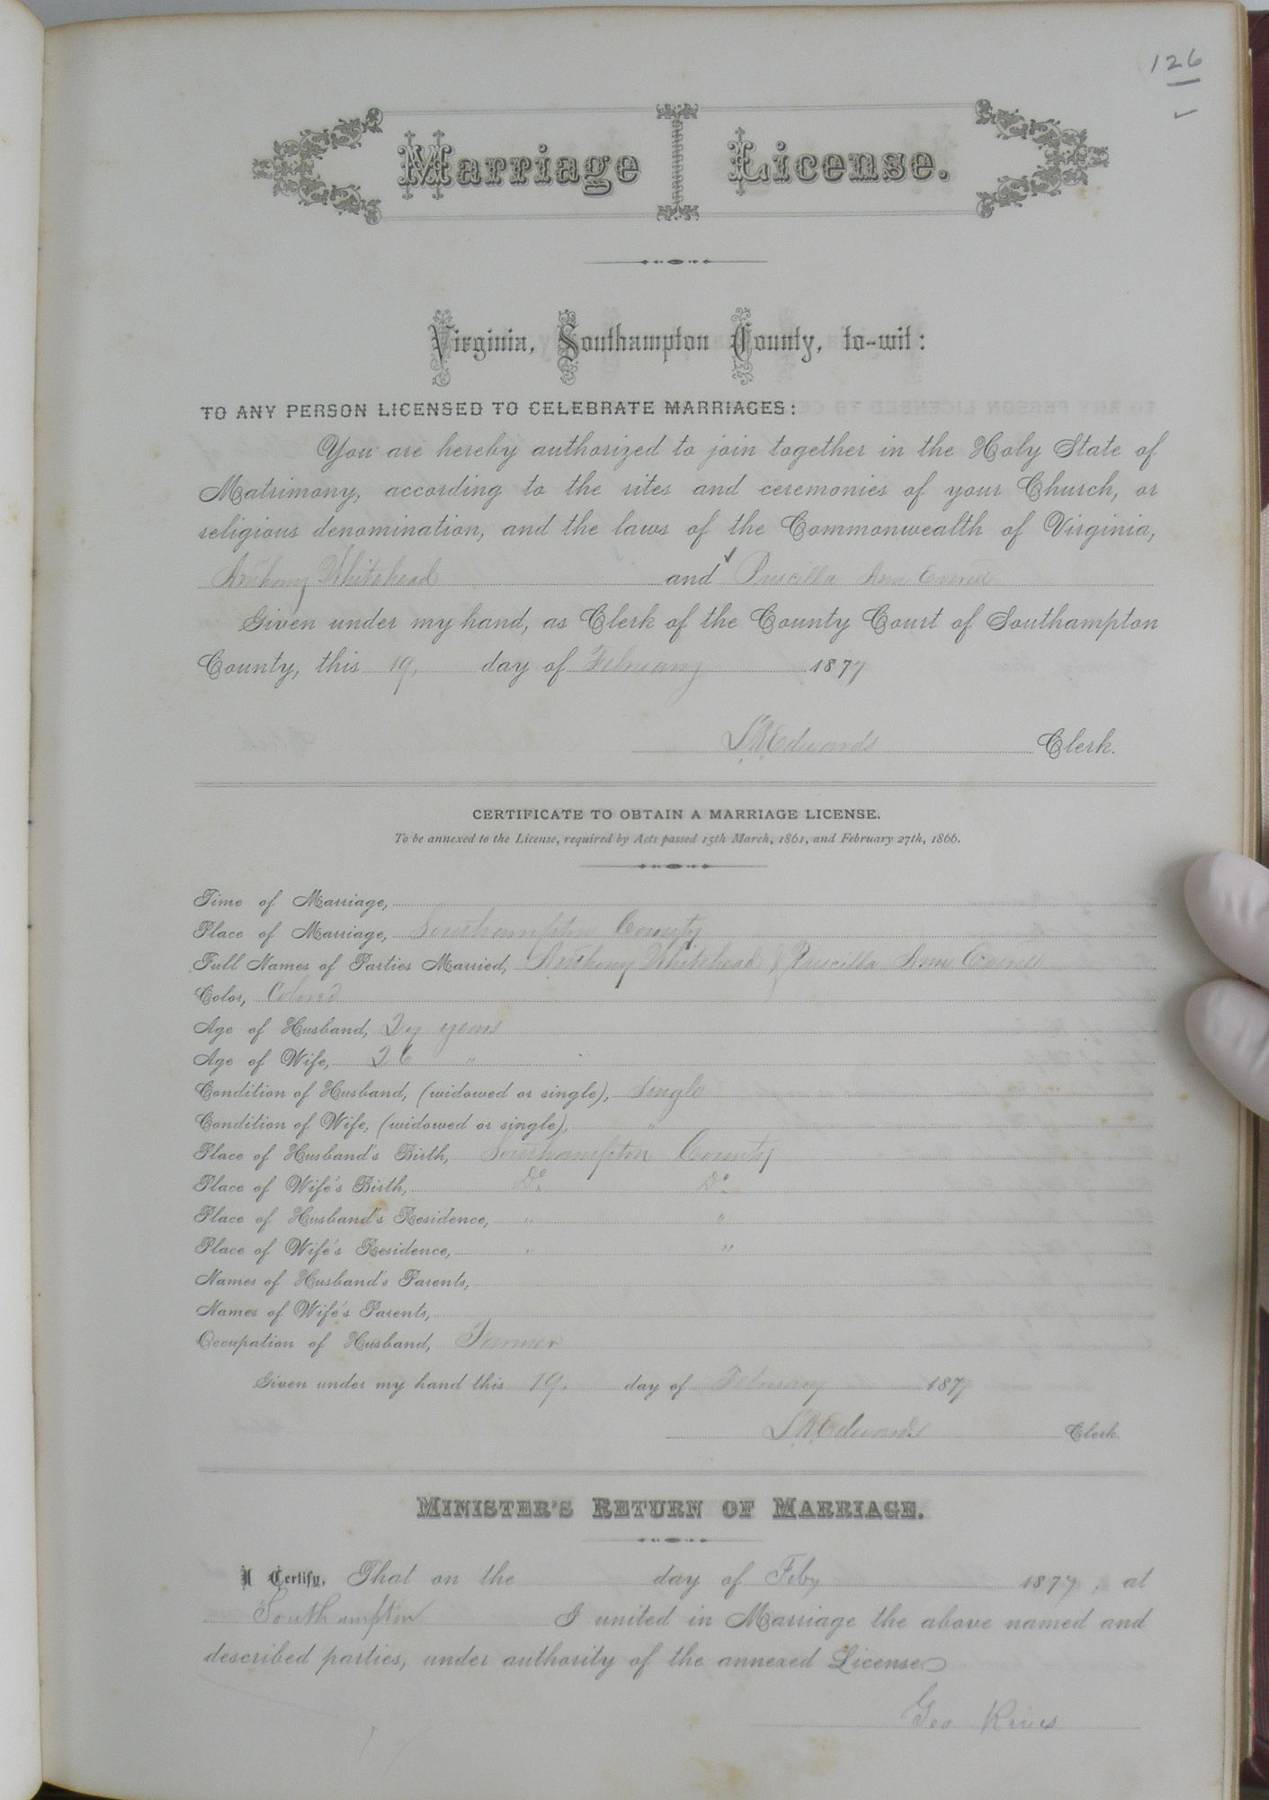 126
Marriage License.
Virginia, Southampton County, to-wit:
TO ANY PERSON LICENSED TO CELEBRATE MARRIAGES:
You are hereby authorized to join together in the Holy State of
Matrimony, according to the rites and ceremonies of your Church, or
religious denomination, and the laws of the Commonwealth of Virginia,
Anthony Whitehead and Priscilla Ann
Given under my hand, as Clerk of the County Court of Southampton
County, this 19. day of February 1877
Edwards Clerk.
CERTIFICATE TO OBTAIN A MARRIAGE LICENSE.
To be annexed to the License, required by Acts passed 15th March, 1861, and February 27th, 1866.
Time of Marriage,
Place of Marriage, Southampton County
Full Names of Parties Married, Anthony Whitehead & Priscilla Ann
Color, Colored
Age of Husband, 27 years
Age of Wife, 26 "
Condition of Husband, (widowed or single), Single
Condition of Wife, (widowed or single), "
Place of Husband's Birth, Southampton County
Place of Wife's Birth, Do. Do.
Place of Husband's Residence, " "
Place of Wife's Residence, " "
Names of Husband's Parents,
Names of Wife's Parents,
Occupation of Husband, Farmer
Given under my hand this 19. day of February 1877
Edwards Clerk
MINISTER'S RETURN OF MARRIAGE.
I Certify, That on the day of Feby 1877, at
Southampton I united in Marriage the above named and
described parties, under authority of the annexed License
Geo Rives